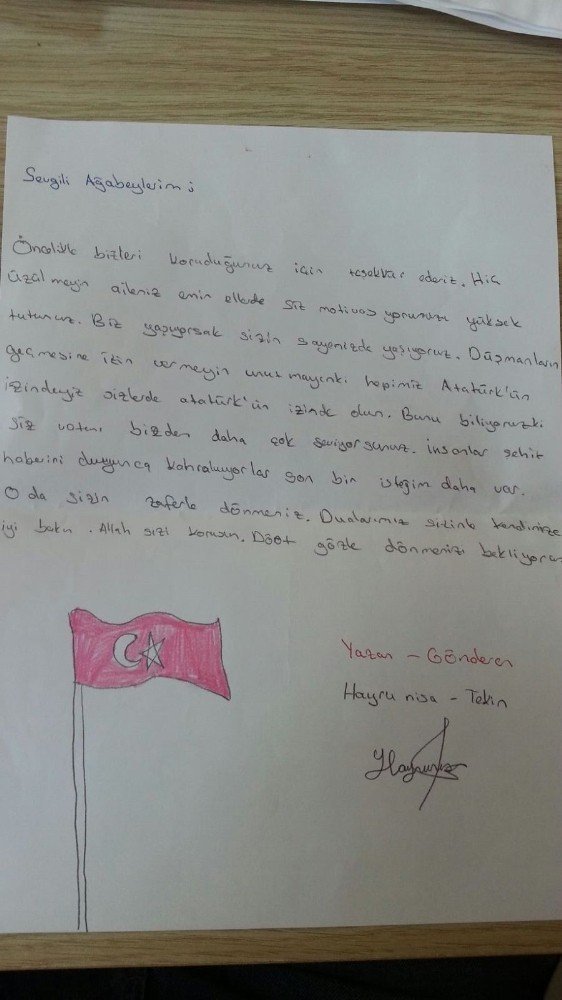 Sevgili Ağabeylerim ;
Öncelikle bizleri koruduğunuz için teşekkür ederiz. Hiç
üzülmeyin aileniz emin ellerde siz motivasyorunuzu yüksek
tutunuz. Biz yaşıyorsak sizin sayenizde yaşıyoruz. Düşmanların
geçmesine izin vermeyin unutmayınki hepimiz Atatürk'ün
izindeyiz sizlerde atatürk'ün izinde olun. Bunu biliyoruzki
siz vatanı bizden daha çok seviyorsunuz. İnsanlar şehit
haberini duyunca kahroluyorlar son bir isteğim daha var.
O da sizin zaferle dönmeniz. Dualarımız sizinle kendinize
iyi bakın. Allah sizi korusun. Dört gözle dönmenizi bekliyoruz
Yazan - Gönderen
Hayru nisa - Tekin